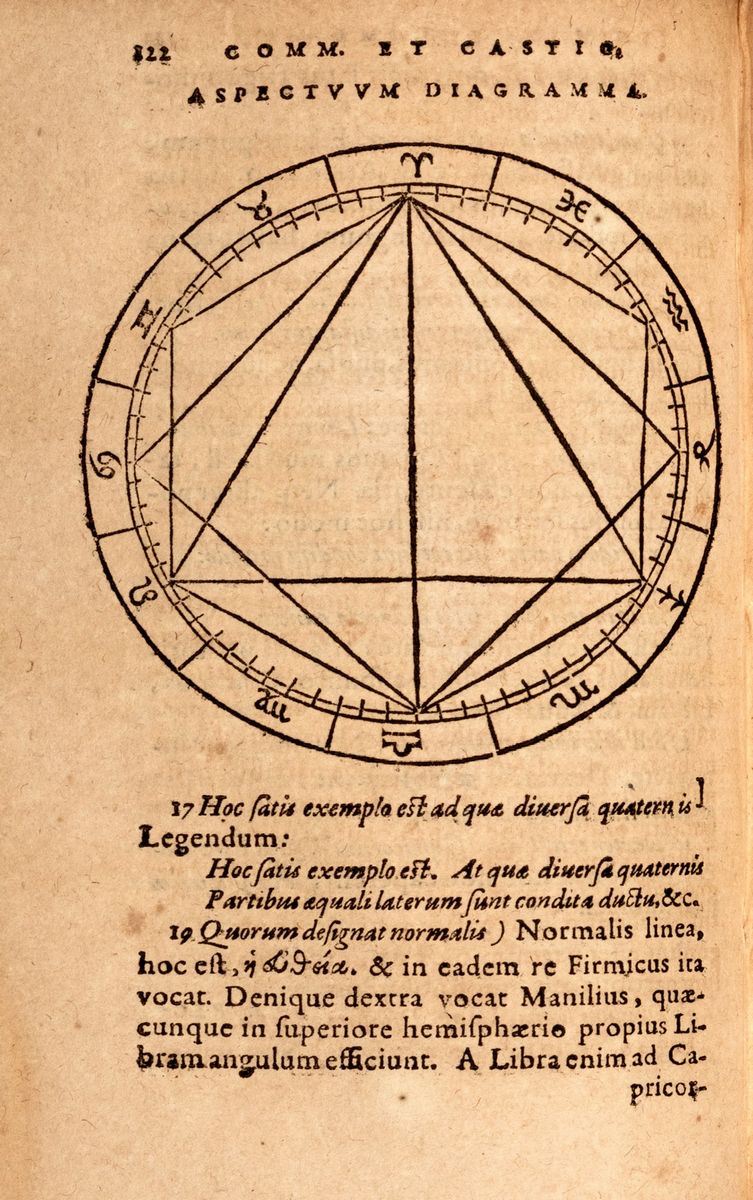 122 COMM. ET CASTIG.
ASPECTVVM DIAGRAMMA.
♈
♉ ♓
♊ ♒
♋ ♑
♌ ♐
♍ ♏
♎
17 Hoc ſatis exemplo eſt ad quæ diuerſa quaternis]
Legendum:
Hoc ſatis exemplo eſt. At quæ diuerſa quaternis
Partibus æquali laterum ſunt condita ductu, &c.
19 Quorum deſignat normalis) Normalis linea,
hoc eſt, ἡ εὐθεία. & in eadem re Firmicus ita
vocat. Denique dextra vocat Manilius, quæ-
cunque in ſuperiore hemiſphærio propius Li-
bram angulum efficiunt. A Libra enim ad Ca-
pricor-